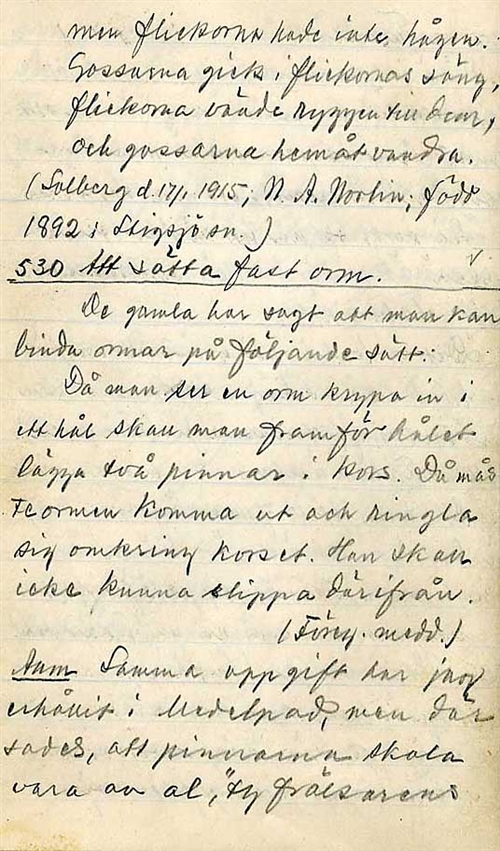 men flickorna hade inte hågen.
Gossarna gick i flickornas säng,
flickorna vände ryggen till dem,
och gossarna hemåt vandra.
(Solberg d. 17/1 1915; N. A. Norlin, född
1892 i Stigsjö sn.)
530 Att sätta fast orm. √
De gamla har sagt att man kan
binda ormar på följande sätt:
Då man ser en orm krypa in i
ett hål skall man framför hålet
lägga två pinnar i kors. Då mås
te ormen komma ut och ringla
sig omkring korset. Han skall
icke kunna slippa därifrån.
(Föreg. medd.)
Anm Samma uppgift har jag
erhållit i Medelpad, men där
sades, att pinnarna skola
vara av al, "ty frälsarens